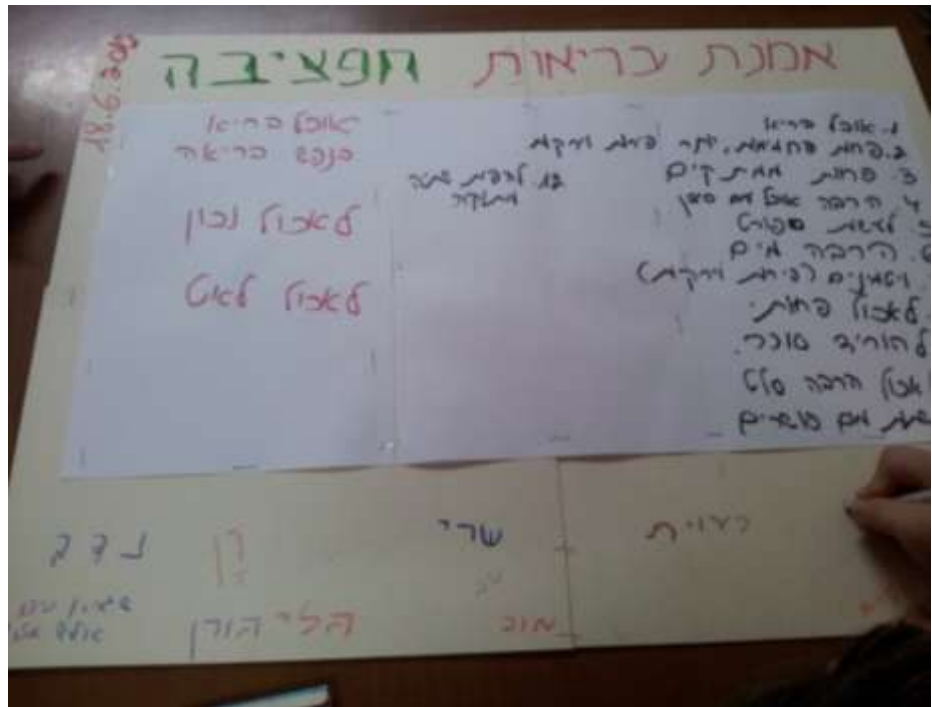 אמנת בריאות חפציבה
1. אוכל בריא
2. פחות פחממות, יותר פירות וירקות
3. פחות ממתקים
4. הרבה אוכל עם סיבים
לעשות ספורט
הרבה מים
ויטמינים (פירות וירקות)
לאכול פחות.
להוריד סוכר.
לאכול הרבה סלט
עם
12. להפחית שתיה
מתוקה
אוכל בריא
בנפש בריאה
לאכול נכון
לאכול לאט
שרי
רן
נדב
הלי הורן